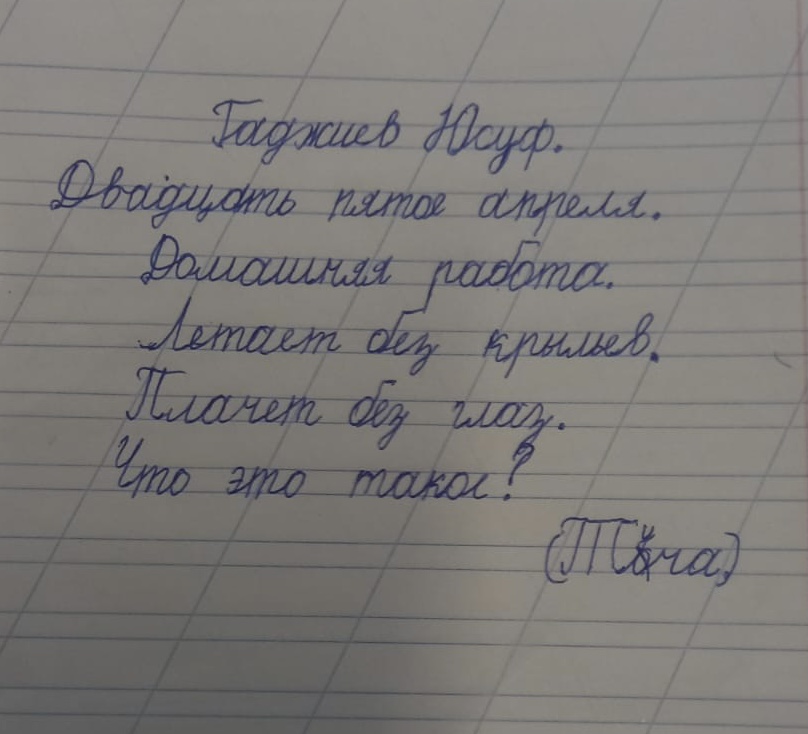 Гаджиев Юсуф.
Двадцать пятое апреля.
Домашняя работа.
Летает без крыльев.
Плачет без глаз.
Что это такое?
(Туча)